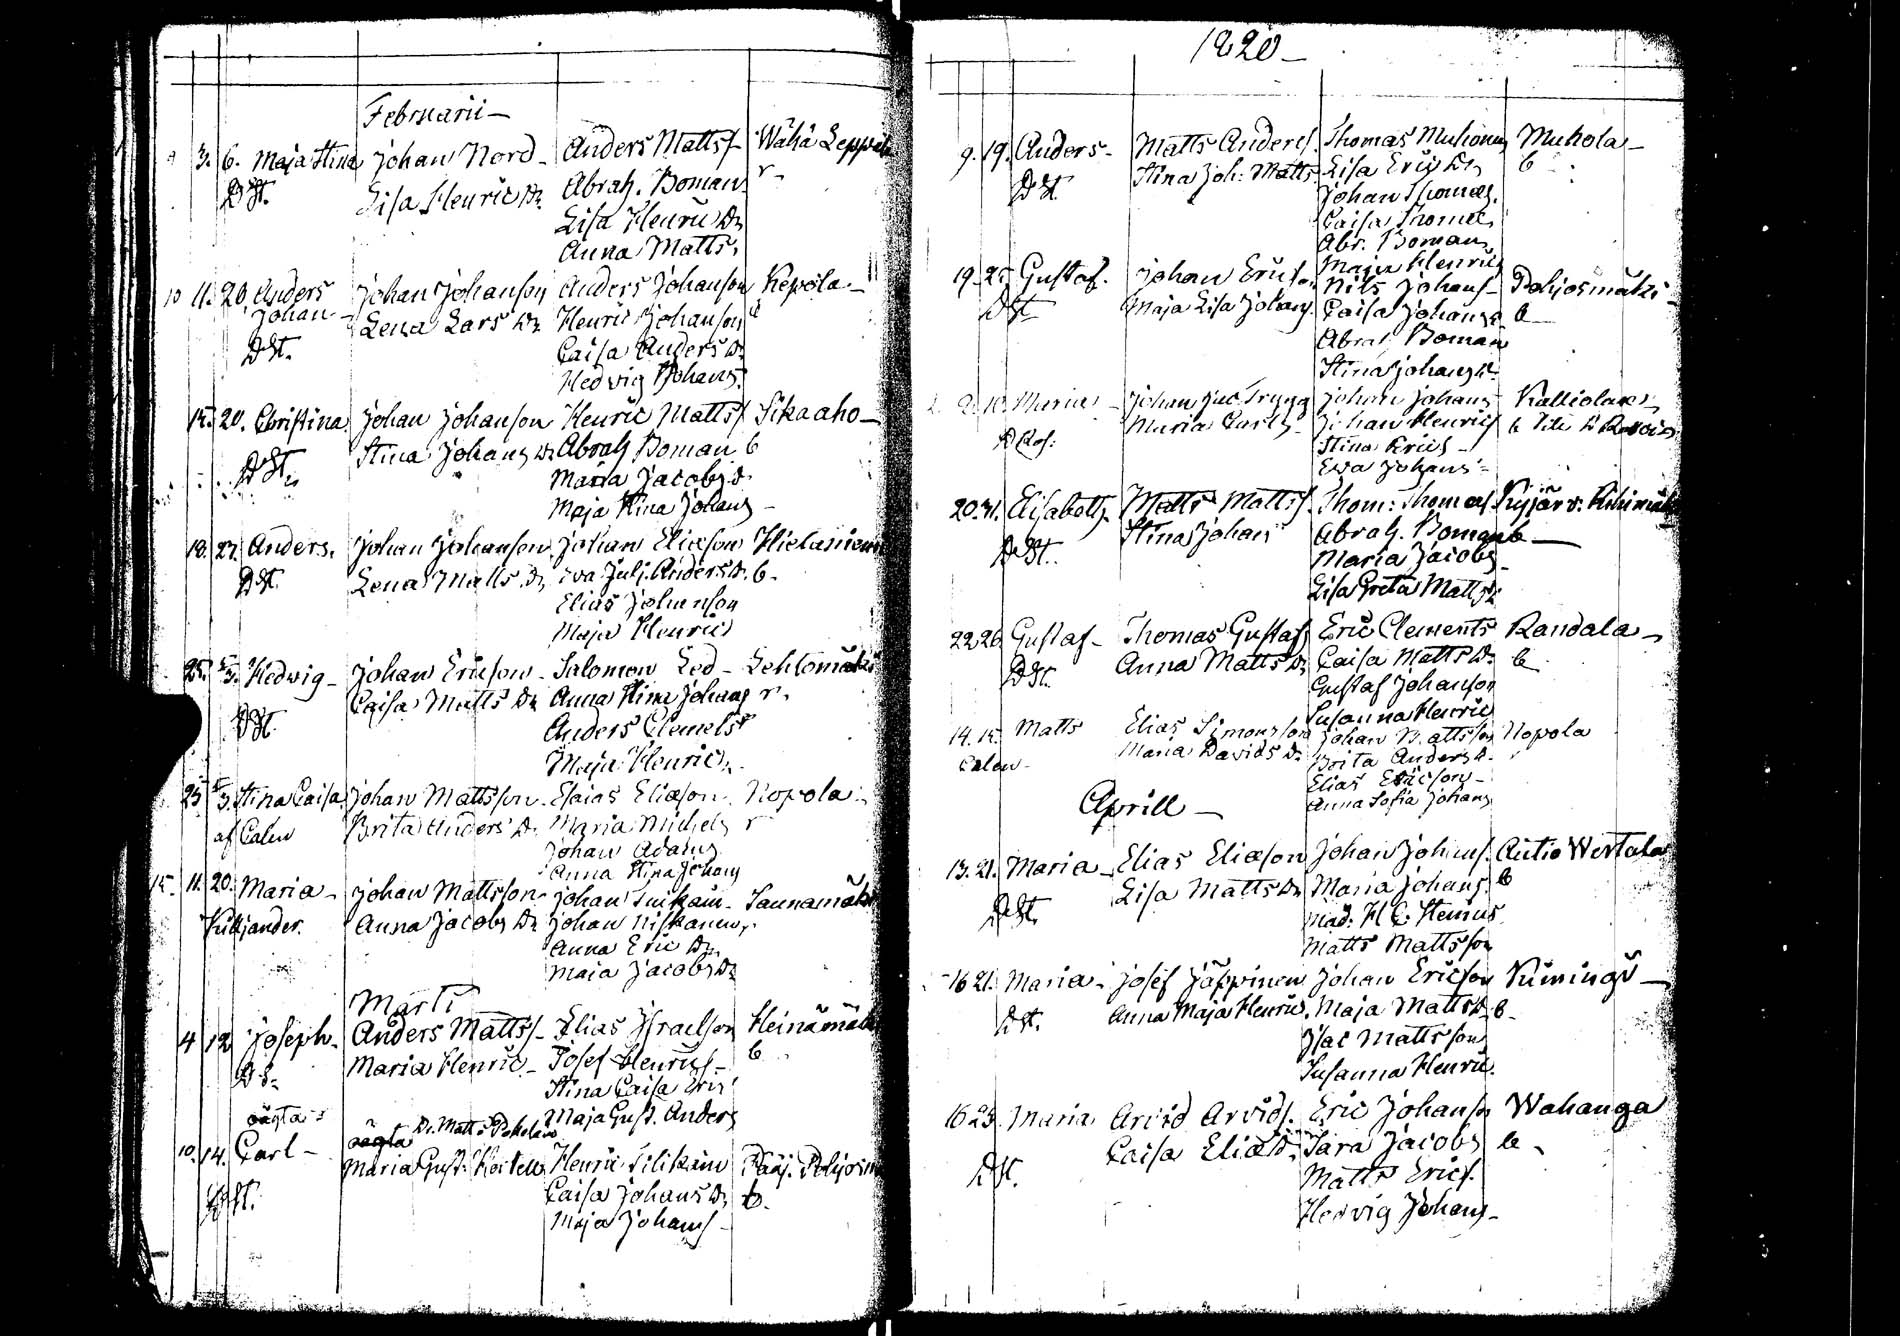 Februarii
3. 6. Maja Stina Johan Nord - Anders Mattsf Wähä Leppä
D. St. Lisa Henric Dr. Abrah. Boman r -
Lisa Henric Dr
Anna Matts
10 11. 20. Anders Johan Johanson Anders Johanson Kepola -
Johan - Lena Lars Dr Henric Johanson
D. St. Caisa Anders D.
Hedvig Johans
15. 20. Christina Johan Johanson Henric Mattsf Sikaaho -
Stina Johans Dr Abrah Boman b
D. St. Maria Jacobs d.
Maja Stina Johans -
18. 27. Anders. Johan Johanson Johan Eliason Hietaniemi
D. St. Lena Matts Dr Eva Julj. Anders D. b -
Elias Johanson
Maja Henric
25. 5/3. Hedwig - Johan Ericson - Salomon Led - Lehtomäki
Caisa Matts Dr Anna Stina Johans r.
D. St. Anders Clemets
Maja Henric
25 5/3. Stina Caisa Johan Mattsson Esaias Eliason Nopola
af Calen Brita Anders D. Maria Michels r
Johan Adams
Anna Stina Johans
15. 11. 20. Maria - Johan Mattsson Johan Johan Niskanen Saunamäki
Kiljander. Anna Jacobs Dr
Anna Eric Dr
Maja Jacobs Dr
Martii
4 12 Joseph - Anders Mattsf - Elias Israelson Heinämäki
D. S. Maria Henric - Josef Henrics - b
Stina Caisa Eric
oägta Maja Gust. Anders
10. 14. Carl - oägta D. Matts
Maria Gust. Henric Silikain Pääj. Pohjoism
D. St. Caisa Johans Dr b.
Maja Johans -
1820 -
9. 19. Anders - Matts Andersf. Thomas Muhonen Muhola -
D. St. Stina Joh: Matts Lisa Eric Dr b
Johan Thomas.
Caisa Thomas
Abr. Boman
Maja Henric
19. 27. Gustaf. Johan Ericson Nils Johans - Pohjosmäki -
D. St. Maja Lisa Johans Caisa Johans b -
Abrah Boman
Stina Johans Dr
Maria - Johan Jac. Trygg Johan Johans Kalliolax
D. Maria Carls - Johan Henrics
Stina Erics -
Eva Johans
20. 31. Elisabeth Matts Mattsf. Thom: Thomas Kyjärv:
D. St. Stina Johans Abrah. Boman b -
Maria Jacobs
Lisa Greta Matts
22. 26. Gustaf - Thomas Gustafs Eric Clements Randala -
D. St. Anna Matts Dr Caisa Matts D. b
Gustaf Johanson
Susanna Henric
14. 15. Matts Elias Simonsson Johan Mattson Nopola
Calen - Maria Davids D. Brita Anders D.
Elias Ericson -
Anna Sofia Johans
Aprill -
13. 21. Maria - Elias Eliason Johan Johans. Autio Wertala
D. St. Lisa Matts Dr Maria Johans. b
Mad. H C. Stenius
Matts Mattsson
16 21. Maria - Josef Jäppinen Johan Ericson Kiminge -
D. St. Anna Maja Henric. Maja Matts D. b -
Isac Mattsson
Susanna Henric.
16 23. Maria Arvid Arvids. Eric Johans Wahanga
D. St. Caisa Elias D. Sara Jacobs b -
Matts Erics.
Hedvig Johans -